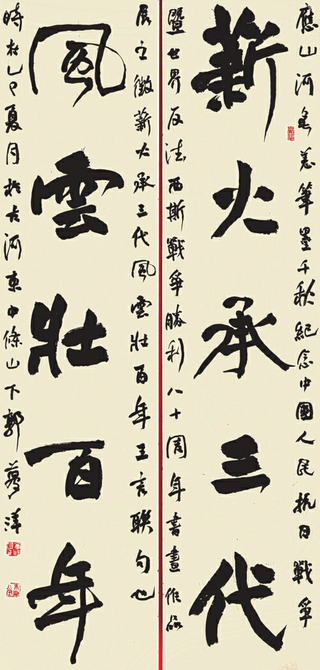 應山河無恙筆墨千秋紀念中國人民抗日戰爭
薪火承三代
暨世界反法西斯戰爭勝利八十周年書畫作品
展徵薪火承三代風雲壯百年五言聯句也
風雲壯百年
時在乙巳夏月於古河東中條山下郭夢洋